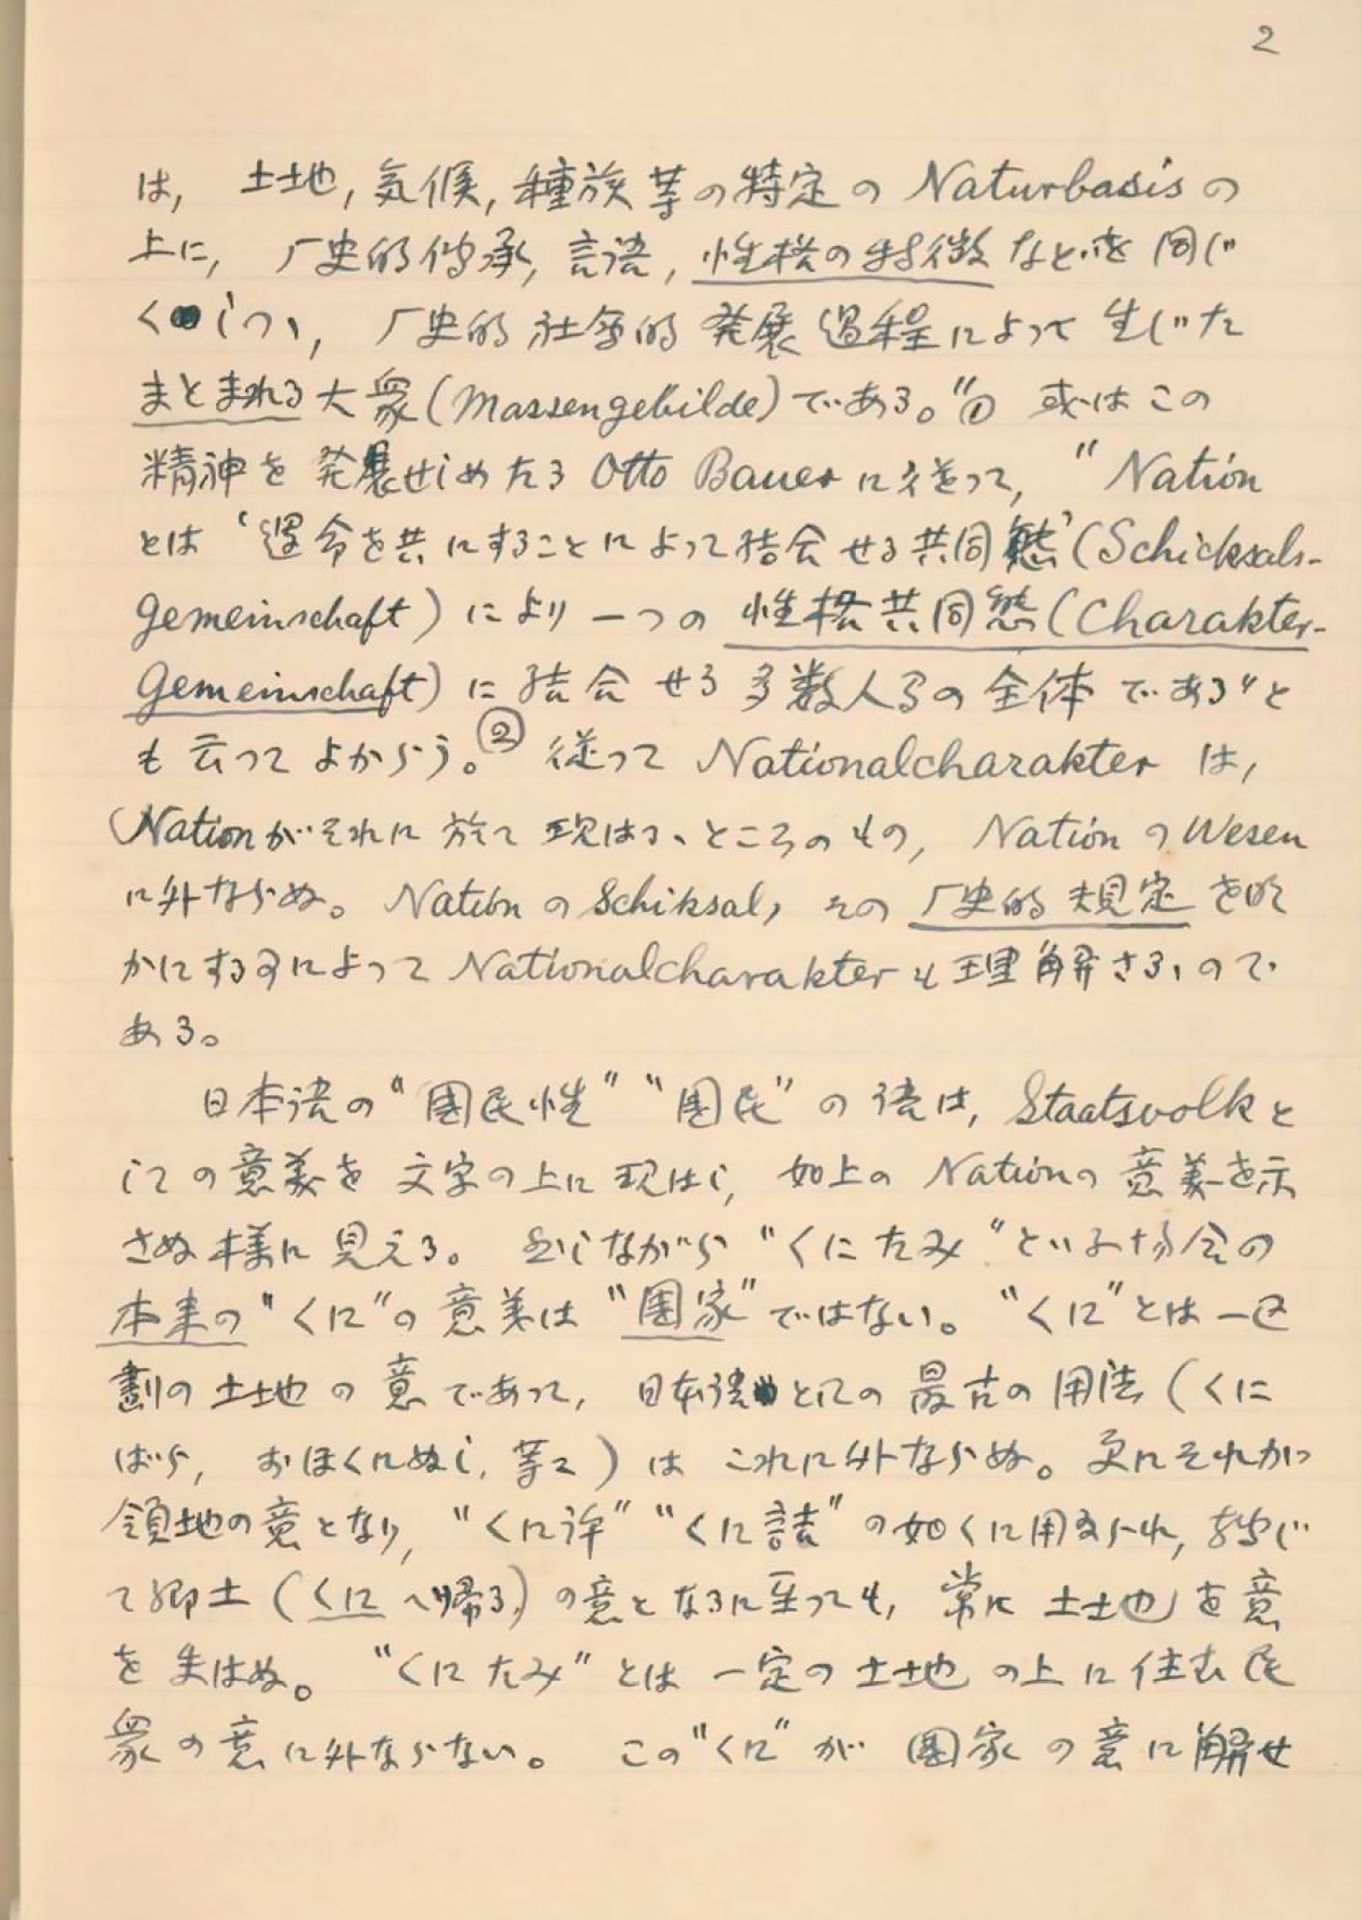 2
は, 土地, 気候, 種族等の特定の Naturbasis の
上に, 厂史的伝承, 言語, 性格の特徴などを同じ
くしつゝ, 厂史的社会的発展過程によって生じた
まとまれる大衆(Massengebilde)である。"① 或はこの
精神を発展せしめたる Otto Bauer に従って, "Nation
とは ‘運命を共にすることによって結合せる共同態’(Schicksals-
gemeinschaft) により一つの性格共同態(Charakter-
gemeinschaft) に結合せる多数人間の全体である"と
も云ってよからう。② 従って Nationalcharakter は,
Nationがそれに於て現はるゝところのもの, Nation の Wesen
に外ならぬ。Nation の Schiksal, その厂史的規定を明
かにする事によって Nationalcharakter も理解さるゝので
ある。
日本語の"國民性" "國民" の語は, Staatsvolk と
しての意義を文字の上に現はし, 如上の Nationの意義を示
さぬ様に見える。併しながら "くにたみ" といふ場合の
本来の "くに"の意義は "國家" ではない。"くに"とは一区
劃の土地の意であって, 日本語としての最古の用法 (くに
ばら, おほくにぬし, 等々) はこれに外ならぬ。更にそれがつ
領地の意となり, "くに許" "くに詰" の如くに用ゐられ, 転じ
て郷土 (くにへ帰る) の意となるに至っても, 常に土地を意
を失はぬ。"くにたみ" とは一定の土地の上に住む民
衆の意に外ならない。この"くに" が國家の意に解せ